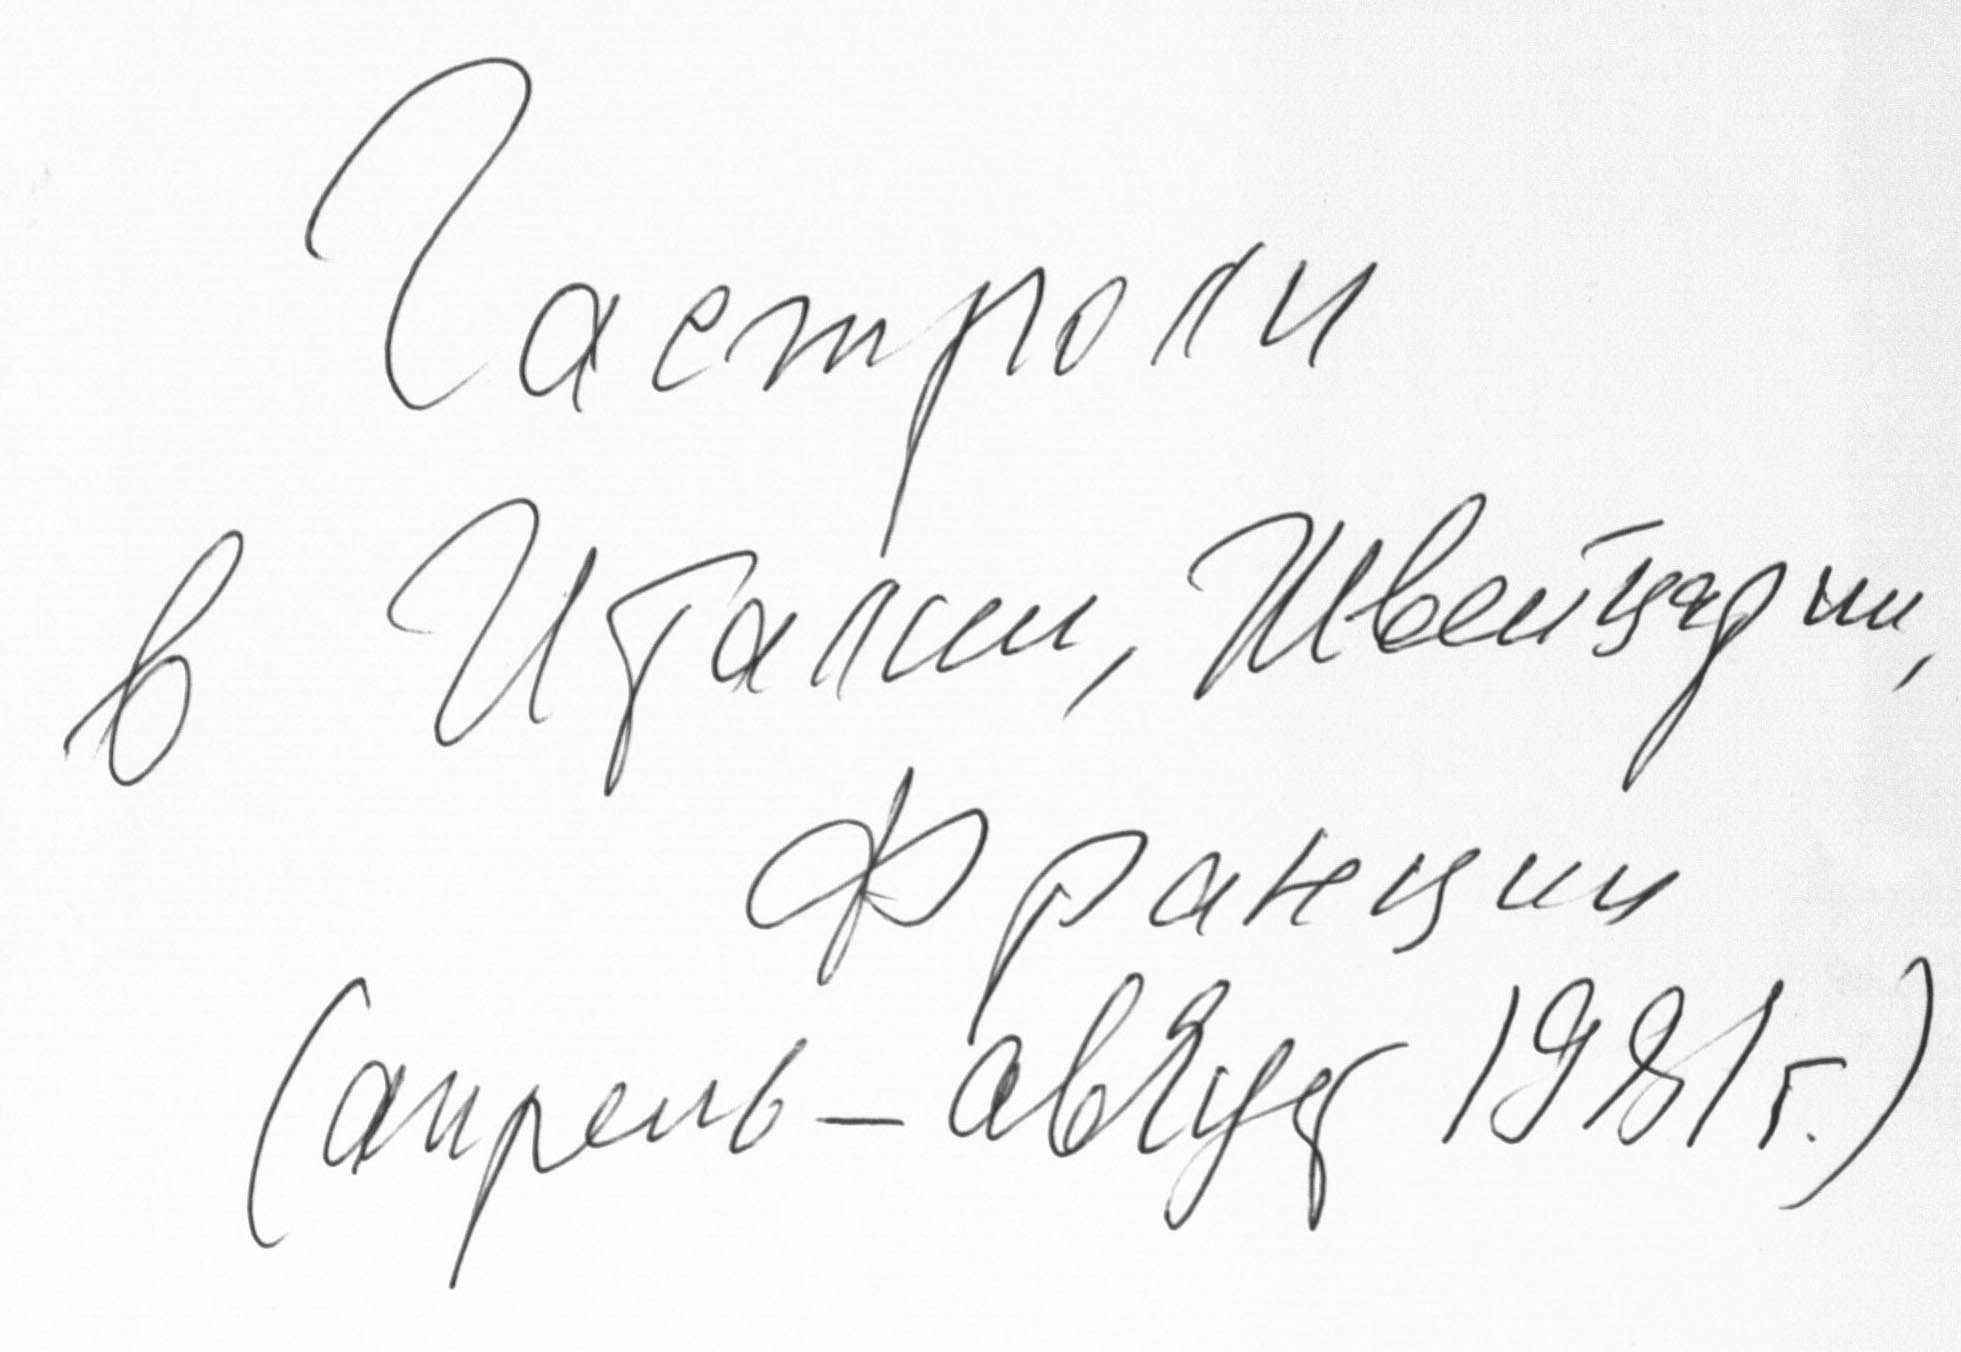 Гастроли
в Италии, Швейцарии,
Франции
(апрель – август 1981 г.)